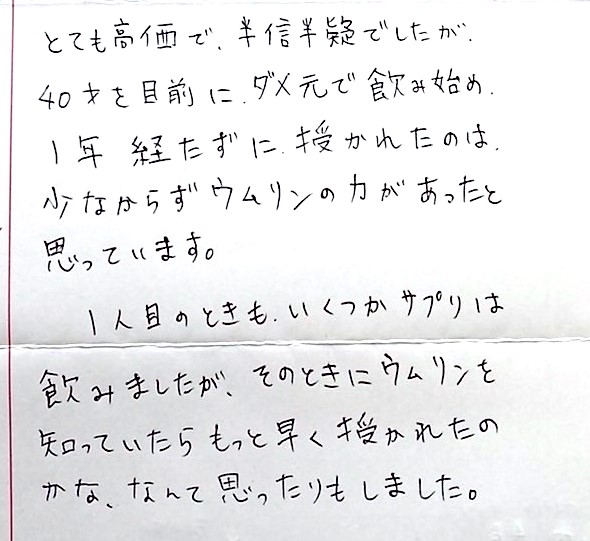 とても高価で、半信半疑でしたが、
40才を目前に、ダメ元で飲み始め、
1年経たずに、授かれたのは、
少なからずウムリンの力があったと
思っています。
1人目のときも、いくつかサプリは
飲みましたが、そのときにウムリンを
知っていたらもっと早く授かれたの
かな、なんて思ったりもしました。